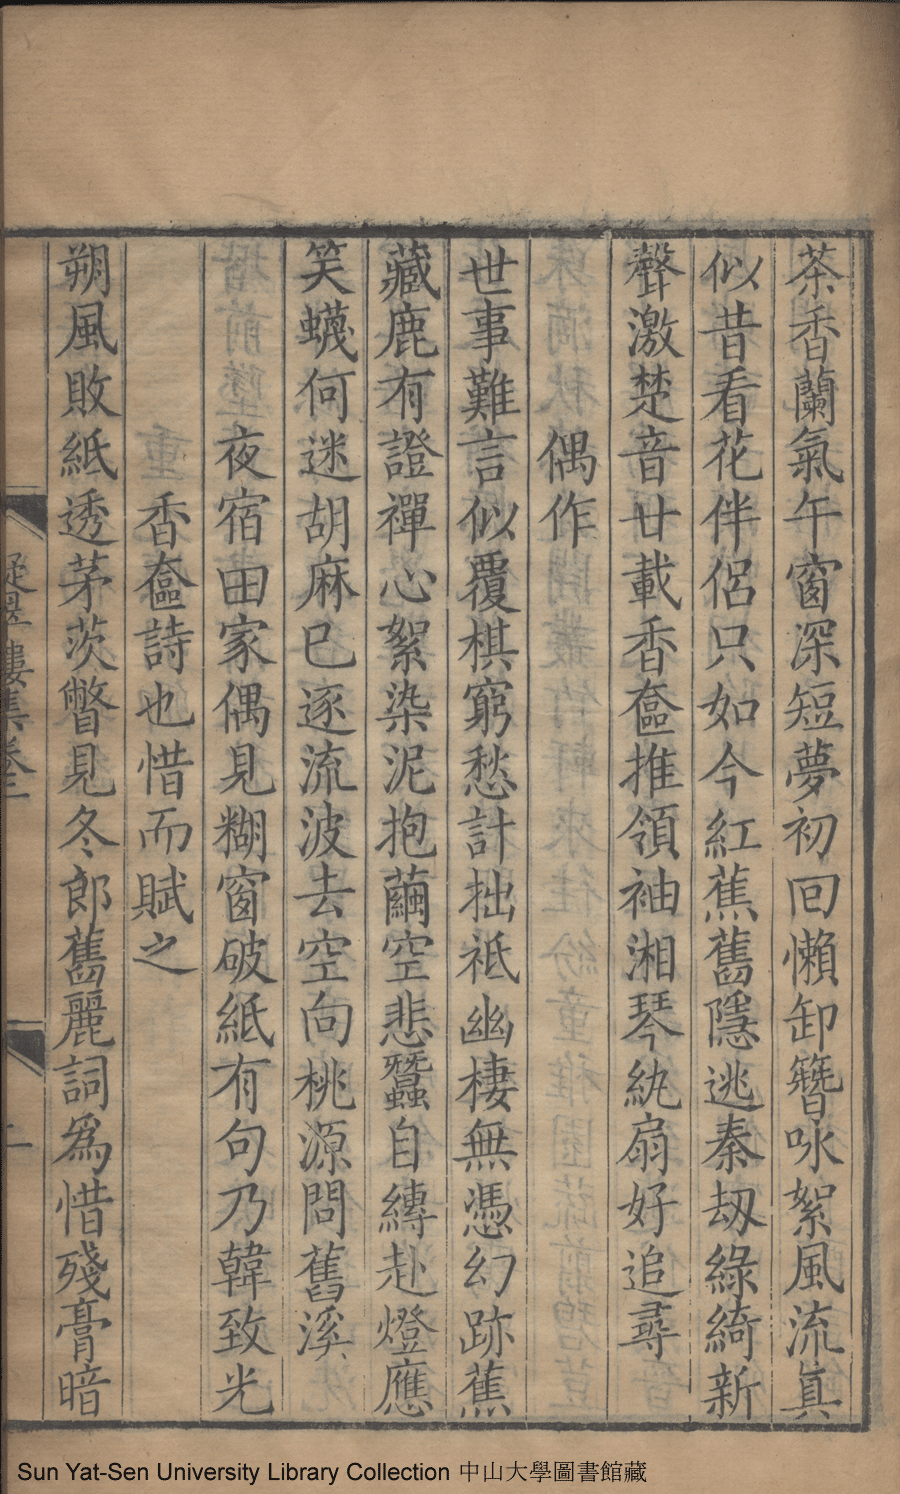 茶香蘭氣午窗深短夢初回懶卸簪咏絮風流眞
似昔看花伴侶只如今紅蕉舊隱逃秦刼綠綺新
聲激楚音廿載香奩推領袖湘琴紈扇好追尋
偶作
世事難言似覆棋窮愁計拙祗幽棲無憑幻跡蕉
藏鹿有證禪心絮染泥抱繭空悲蠶自縳赴燈應
笑蠛何迷胡麻已逐流波去空向桃源問舊溪
夜宿田家偶見糊窗破紙有句乃韓致光
香奩詩也惜而賦之
朔風敗紙透茅茨瞥見冬郎舊麗詞爲惜殘膏暗
樓集卷二
二
Sun Yat-Sen University Library Collection 中山大學圖書館藏